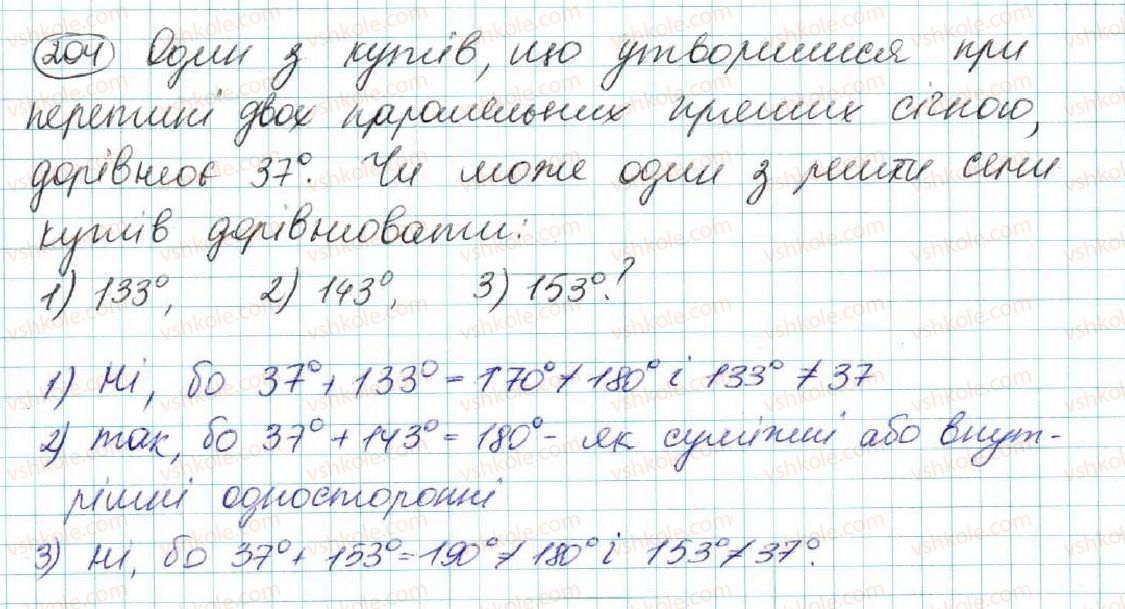 204 Один з кутів, що утворилися при
перетині двох паралельних прямих січною,
дорівнює 37°. Чи може один з решти семи
кутів дорівнювати:
1) 133°, 2) 143°, 3) 153°?
1) Ні, бо 37° + 133° = 170° ≠ 180° і 133° ≠ 37
2) так, бо 37° + 143° = 180° - як суміжні або внут-
рішні односторонні
3) Ні, бо 37° + 153° = 190° ≠ 180° і 153° ≠ 37°.
vshkole.com